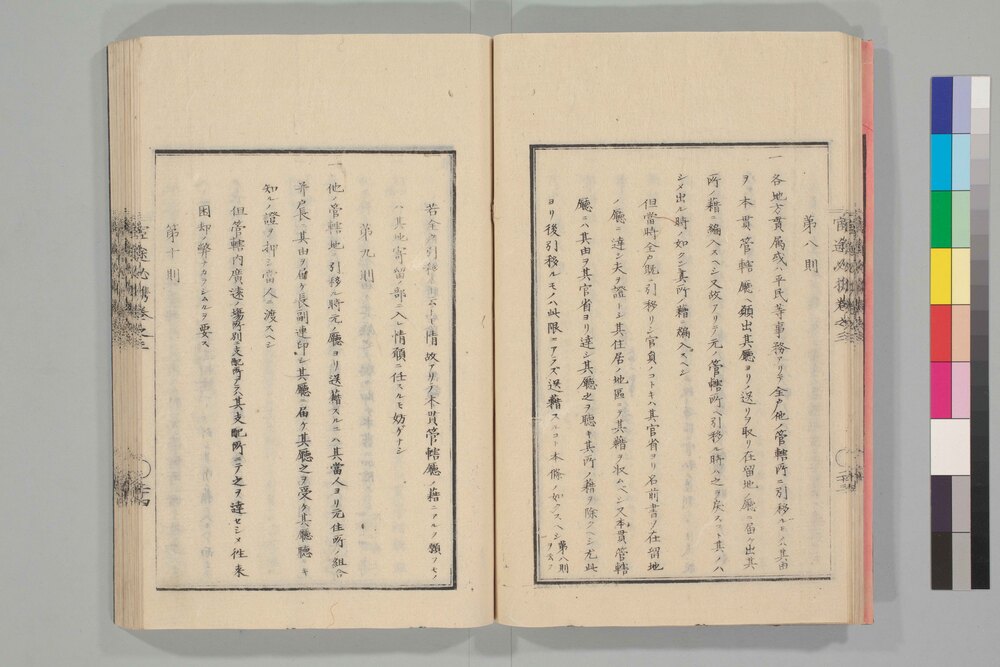 第八則
一 各地方貫属或ハ平民等事務アリテ全戸他ノ管轄所ニ引移ルモノハ其由
ヲ本貫管轄廳ヘ願出其廳ヨリノ送リヲ取リ在留地ノ廳ニ届ケ出其
所ノ籍ニ編入スヘシ又故アリテ元ノ管轄所ヘ引移ル時ハ之ヲ戻スコト其ノハ
シメ出ル時ノ如クシ其所ノ籍ニ編入スヘシ
但當時全戸既ニ引移リシ官員ノコトキハ其官省ヨリ名前書ヲ在留地
ノ廳ニ達シ夫ヲ證トシ其住居ノ地區ニテ其籍ヲ収ムヘシ又本貫管轄
廳ニハ其由ヲ其官省ヨリ達シ其廳之ヲ聴キ其所ノ籍ヲ除クヘシ尤此
ヨリ後引移ルモノハ此限ニアラズ送籍スルコト本條ノ如クスヘシ 第八則
若全戸引移ルニモ情故アリテ本貫管轄廳ノ籍ニアルヲ願フモノ
ハ其地寄留ノ部ニ入レ情願ニ任スルモ妨ケナシ
第九則
一 他ノ管轄地ニ引移ル時元ノ廳ヨリ送籍スルニハ其當人ヨリ元住所ノ組合
并戸長ニ其由ヲ届ケ長副連印シ其廳ニ届ケ其廳之ヲ受ケ其廳聴ヽキ
知ルノ證ヲ押シ當人ニ渡スヘシ
但管轄内廣遠ノ場所別ニ支配所アラハ其支配所ニテ之ヲ達セシメ往来
困却ノ弊ナカラシムルヲ要ス
第十則